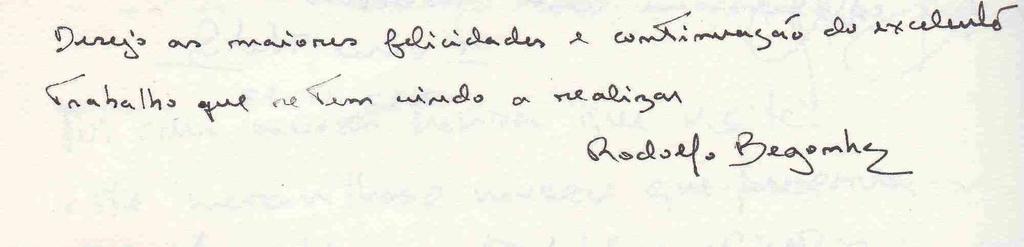 Desejo as maiores felicidades e continuação do excelente
trabalho que se tem vindo a realizar
Rodolfo Begonha